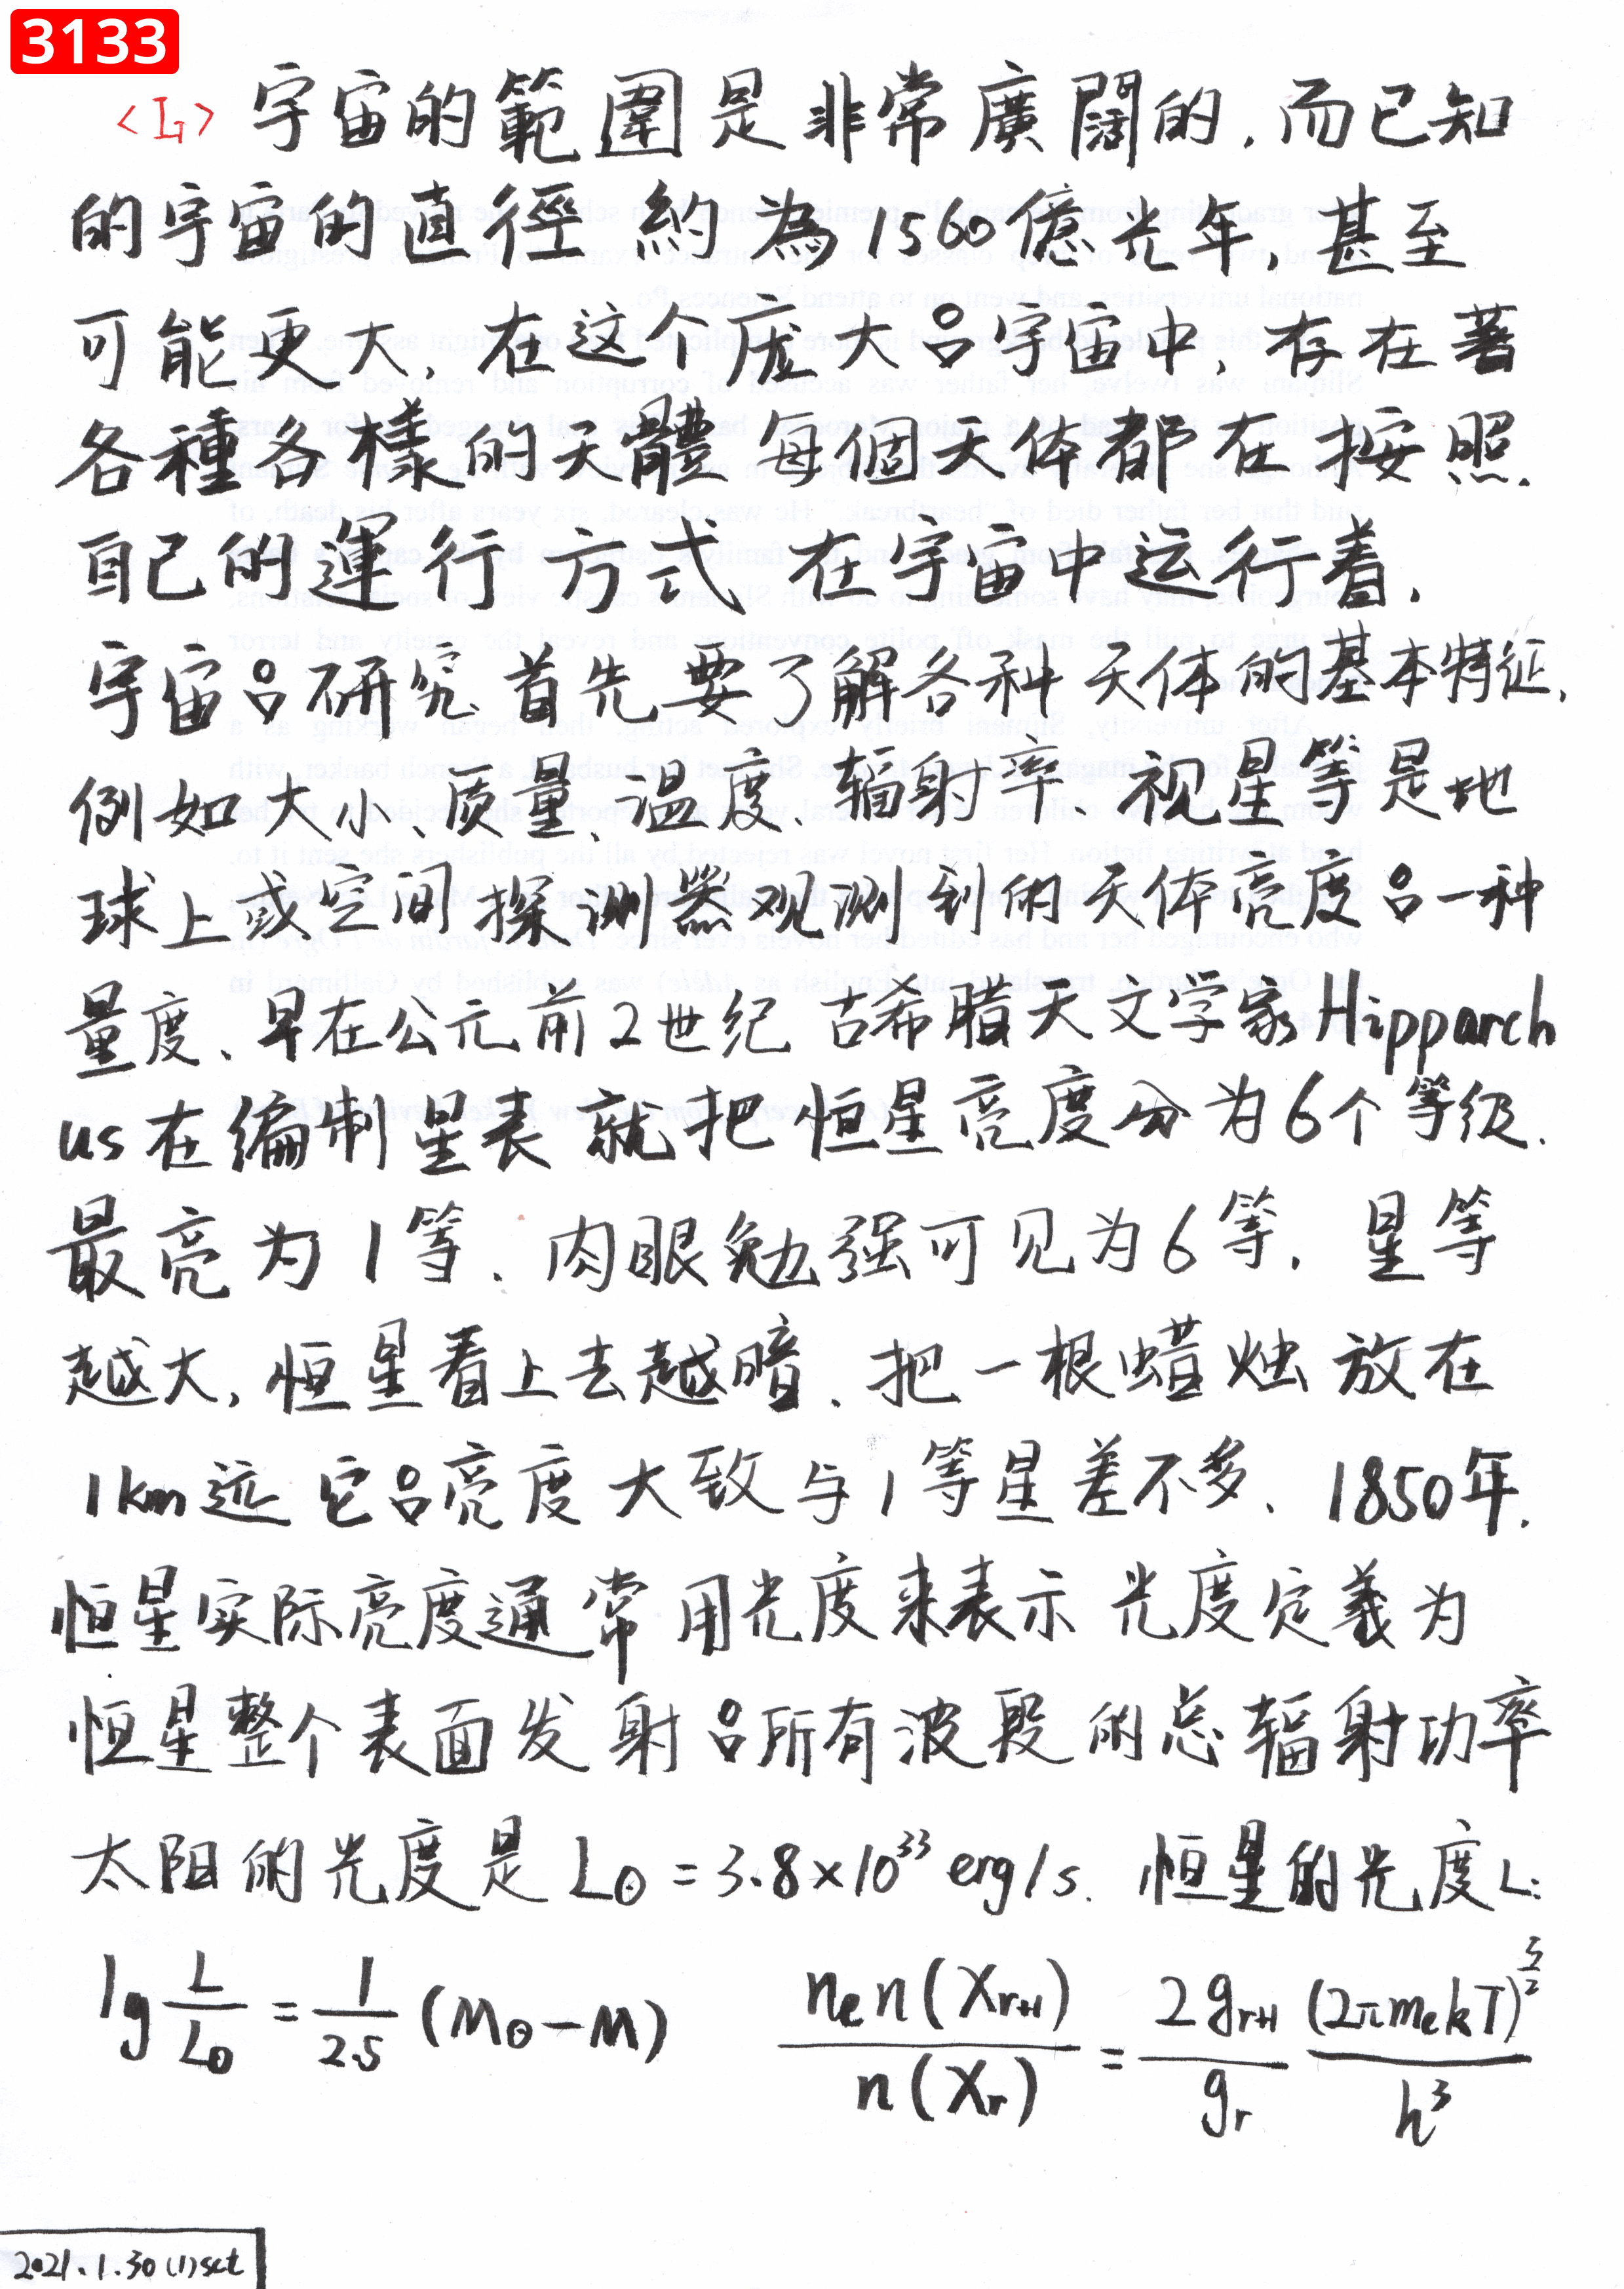 3133
<L> 宇宙的範圍是非常廣闊的,而已知
的宇宙的直徑 約為1560億光年,甚至
可能更大,在这个庞大呂宇宙中,存在著
各種各樣的天體 每個天体都在按照
自己的運行方式 在宇宙中运行着,
宇宙呂研究 首先要了解各种天体的基本特征,
例如大小、质量、温度、辐射率 视星等是地
球上或空间探测器观测到的天体亮度呂一种
量度、早在公元前2世纪 古希腊天文学家Hipparch
us在编制星表就把恒星亮度分为6个等级.
最亮为1等、肉眼勉强可见为6等. 星等
越大,恒星看上去越暗、把一根蜡烛放在
1km远 它呂亮度大致与1等星差不多、1850年.
恒星实际亮度通常用光度来表示 光度定義为
恒星整个表面发射呂所有波段的总辐射功率
太阳的光度是L⊙=3.8×10³³erg/s. 恒星的光度L:
lg L/L⊙ = 1/2.5 (M⊙-M) nₑn(Xᵣ₊₁)/n(Xᵣ) = 2gᵣ₊₁/gᵣ (2πmₑkT)^(3/2)/h³
2021.1.30 (1)sct